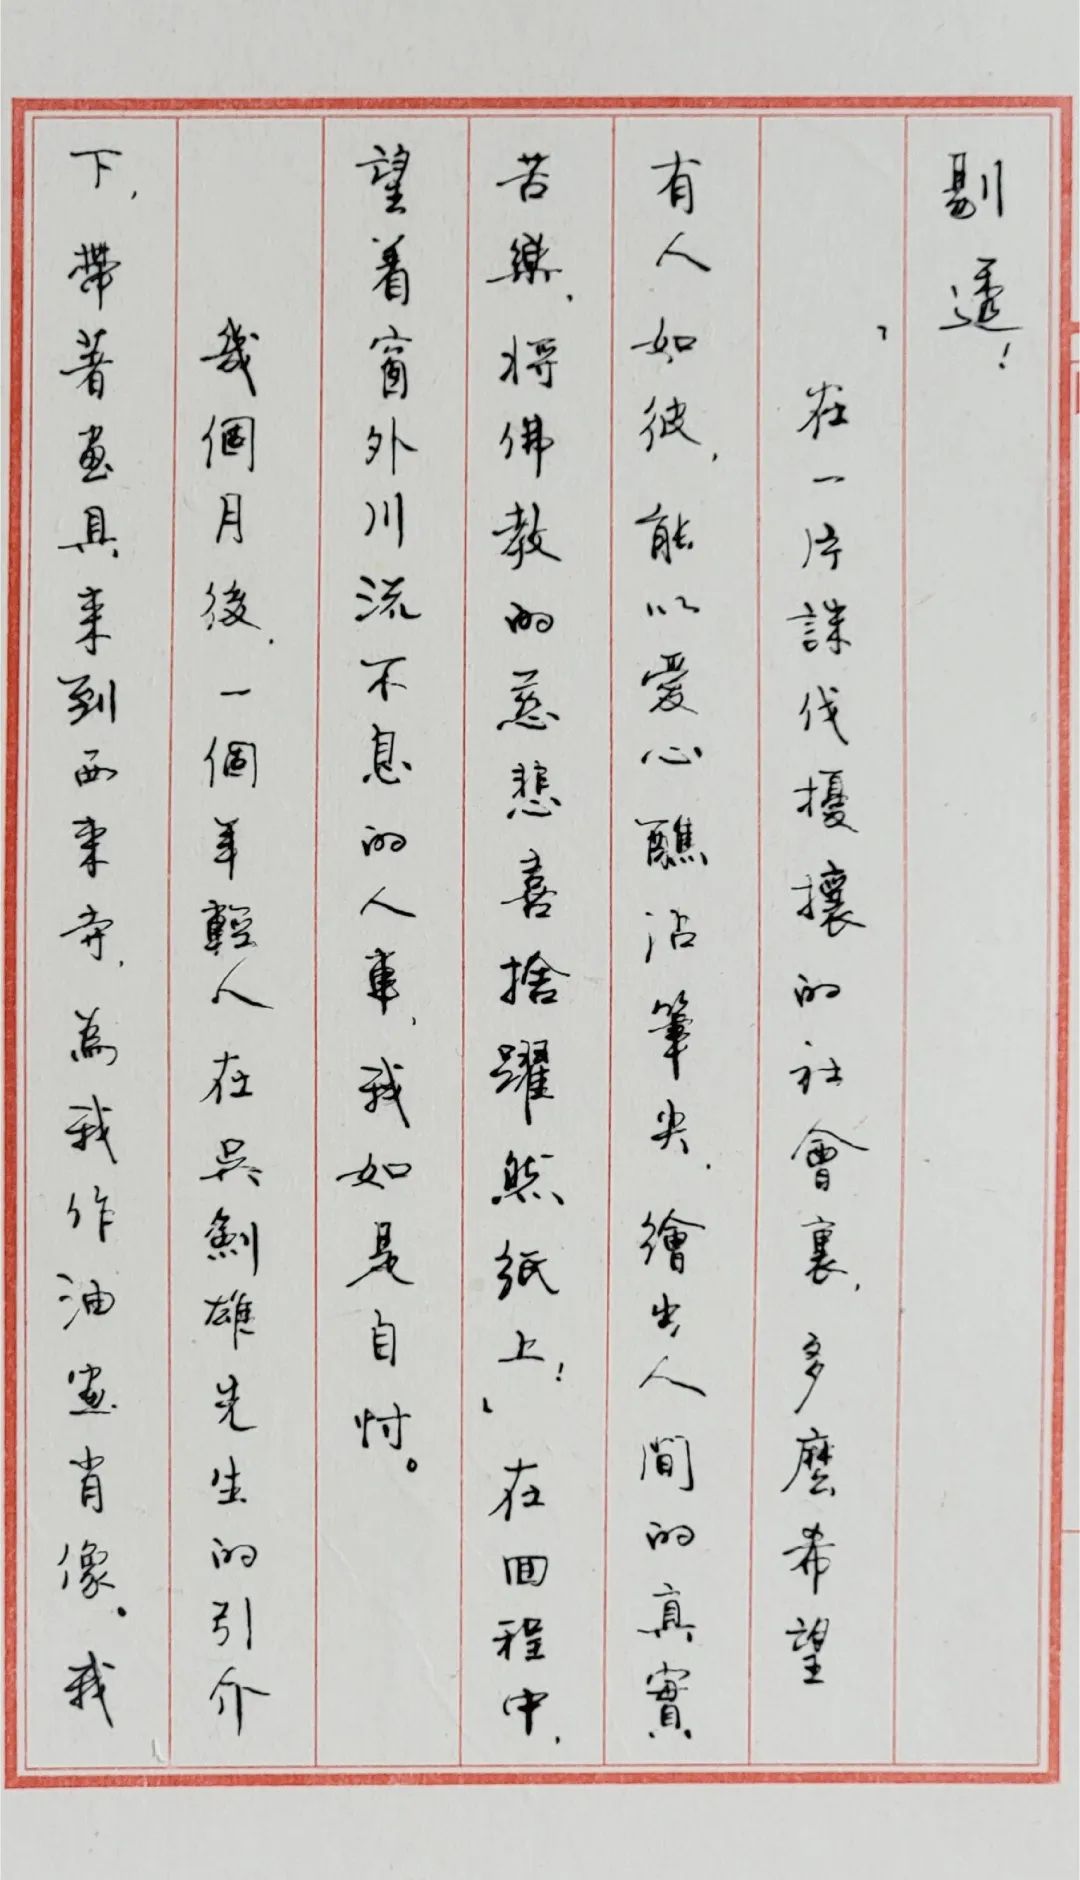 剔透！
「在一片誅伐擾攘的社會裏，多麼希望
有人如彼，能以愛心醮沾筆尖，繪出人間的真實
苦樂，將佛教的慈悲喜捨躍然紙上！」在回程中，
望着窗外川流不息的人車，我如是自忖。
幾個月後，一個年輕人在吳劍雄先生的引介
下，帶著畫具來到西來寺，為我作油畫肖像。我